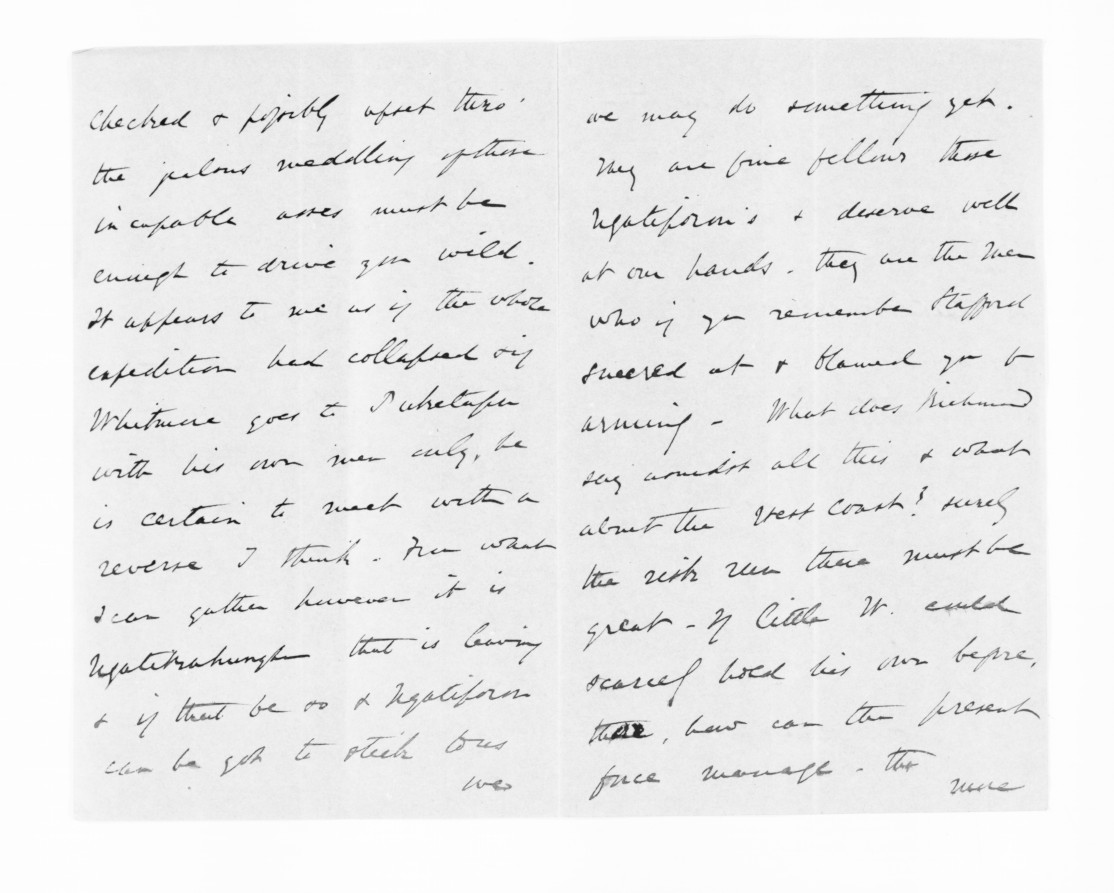 checked & possibly upset thro'
the jealous meddling of those
incapable asses must be
enough to drive you wild.
It appears to me as if the whole
expedition had collapsed & if
Whitmore goes to Puketapu
with his own men only, he
is certain to meet with a
reverse I think. From what
I can gather however it is
Ngatikahungu that is leaving
& if that be so & Ngatiporou
can be got to stick to us
we
we may do something yet.
They are fine fellows these
Ngatiporou's & deserve well
at our hands. they are the men
who if you remember Stafford
sneered at & blamed you for
arming - What does Richmond
say amidst all this & what
about the West Coast? surely
the risk run there must be
great - If little W. could
scarcely hold his own before,
there, how can the present
force manage. The
more